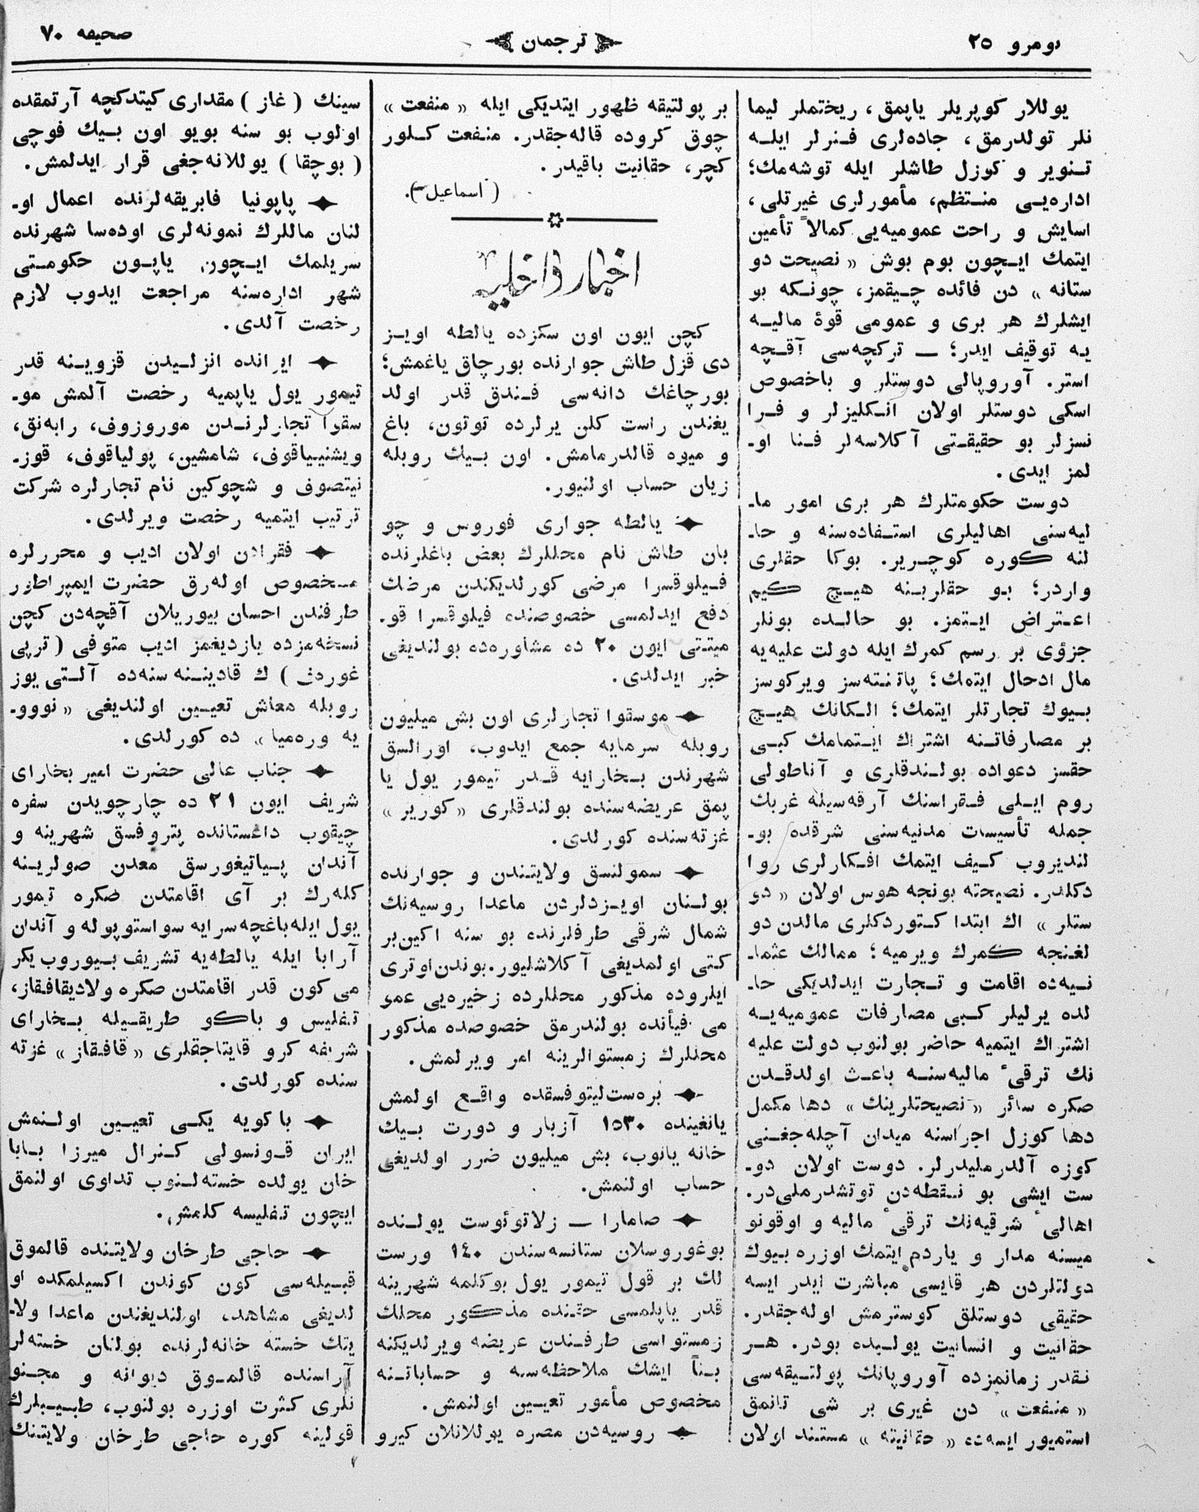 نومرو ۲۵
ترجمان
صحیفه ۷۰
یوللار کوپریلر یاپمق، ریختملر لیما
نلر تولدرمق، جاده‌لری فنرلر ایله
تنویر و کوزل طاشلر ایله توشه‌مك؛
اداره‌یی منتظم، مأمورلری غیرتلی،
اسایش و راحت عمومیه‌یی کمالاً تأمین
ایتمك ایچون بوم بوش « نصیحت دو
ستانه » دن فائده چیقمز، چونکه بو
ایشلرك هر بری و عمومی قوهٔ مالیه
یه توقیف ایدر؛ — ترکچه‌سی آقچه
استر. آوروپالی دوستلر و باخصوص
اسکی دوستلر اولان انکلیزلر و فرا
نسزلر بو حقیقتی آکلاسه‌لر فنا او۔
لمز ایدی.
دوست حکومتلرك هر بری امور ما۔
لیه‌سنی اهالیلری استفاده‌سنه و حا۔
لنه کوره کوچریر. بوکا حقلری
واردر؛ بو حقلرینه هیچ کیم
اعتراض ایتمز. بو حالده بونلر
جزؤی بر رسم کمرك ایله دولت علیه‌یه
مال ادحال ایتمك؛ پاتنته‌سز ویرکوسز
بیوك تجارتلر ایتمك؛ الکانك هیچ
بر مصارفاتنه اشتراك ایتمامك کبی
حقسز دعواده بولندقلری و آناطولی
روم ایلی فقراسنك آرقه‌سیله غربك
جمله تأسیسات مدنیه‌سنی شرقده بو۔
لندیروب کیف ایتمك افکارلری روا
دکلدر. نصیحته بونجه هوس اولان « دو
ستلر » اك ابتدا کتوردکلری مالدن دو
لغنجه کمرك ویرمیه؛ ممالك عثما۔
نیه‌ده اقامت و تجارت ایدلدیکی حا۔
لده یرلیلر کبی مصارفات عمومیه‌یه
اشتراك ایتمیه حاضر بولنوب دولت علیه
نك ترقیٔ مالیه‌سنه باعث اولدقدن
صکره سائر « نصیحتلرینك » دها مکمل
دها کوزل اجراسنه میدان آچله‌جغنی
کوزه آلدرملیدرلر. دوست اولان دو۔
ست ایشی بو نقطه‌دن توتشدرملی‌در.
اهالیٔ شرقیه‌نك ترقیٔ مالیه و اوقونو
میسنه مدار و یاردم ایتمك اوزره بیوك
دولتلردن هر قایسی مباشرت ایدر ایسه
حقیقی دوستلق کوسترمش اوله‌جقدر.
حقانیت و انسانیت یولیده بودر. هر
نقدر زمانمزده آوروپانك پولتیقه‌سی
« منفعت » دن غیری بر شی تانمق
استمیور ایسه‌ده « حقانیته » مستند اولان
بر پولتیقه ظهور ایتدیکی ایله « منفعت »
چوق کروده قاله‌جقدر. منفعت کلور
کچر، حقانیت باقیدر.
(اسماعیل).
اخبار داخلیه
کچن ایون اون سکزده یالطه اویز
دی قزل طاش جوارنده بورچاق یاغمش؛
بورچاغك دانه‌سی فندق قدر اولد
یغندن راست کلن یرلرده توتون، باغ
و میوه قالدرمامش. اون بیك روبله
زیان حساب اولنیور.
یالطه جواری فوروس و چو
بان طاش نام محللرك بعض باغلرنده
فیلوقسرا مرضی کورلدیکندن مرضك
دفع ایدلمسی خصوصنده فیلوقسرا قو۔
میتتی ایون ۲۰ ده مشاوره‌ده بولندیغی
خبر ایدلدی.
موسقوا تجارلری اون بش میلیون
روبله سرمایه جمع ایدوب، اورالسق
شهرندن بخارایه قدر تیمور یول یا
پمق عریضه‌سنده بولندقلری « کوریر »
غزته‌سنده کورلدی.
سمولنسق ولایتندن و جوارنده
بولنان اویزدلردن ماعدا روسیه‌نك
شمال شرقی طرفلرنده بو سنه اکین‌بر
کتی اولمدیغی آکلاشلیور. بوندن‌اوتری
ایلروده مذکور محللرده زخیره‌یی عمو
می فیأنده بولندرمق خصوصده مذکور
محللرك زمستوالرینه امر ویرلمش.
بره‌ست‌لیتوفسقده واقع اولمش
یانغینده ۱۵۳۰ آزبار و دورت بیك
خانه یانوب، بش میلیون ضرر اولدیغی
حساب اولنمش.
صامارا — زلاتوئوست یولنده
بوغوروسلان ستانسه‌سندن ۱٤۰ ورست
لك بر قول تیمور یول بوکلمه شهرینه
قدر یاپلمسی حقنده مذکور محلك
زمستواسی طرفندن عریضه ویرلدیکنه
بناً ایشك ملاحظه‌سنه و حساباتنه
مخصوص مأمور تعیین اولنمش.
روسیه‌دن مصره یوللانلان کیرو
سینك ( غاز ) مقداری کیتدکچه آرتمقده
اولوب بو سنه بویو اون بیك فوچی
( بوچقا ) یوللانه‌جغی قرار ایدلمش.
پاپونیا فابریقه‌لرنده اعمال او۔
لنان ماللرك نمونه‌لری اوده‌سا شهرنده
سریلمك ایچون یاپون حکومتی
شهر اداره‌سنه مراجعت ایدوب لازم
رخصت آلدی.
ایرانده انزلیدن قزوینه قدر
تیمور یول یاپمیه رخصت آلمش مو۔
سقوا تجارلرندن موروزوف، رابه‌نق،
ویشنیاقوف، شامشین، پولیاقوف، قوز۔
نیتصوف و شچوکین نام تجارلره شرکت
ترتیب ایتمیه رخصت ویرلدی.
فقرادن اولان ادیب و محررلره
مخصوص اوله‌رق حضرت ایمپراطور
طرفندن احسان بیوریلان آقچه‌دن کچن
نسخه‌مزده یازدیغمز ادیب متوفی (ترپی
غوردف) ك قادیننه سنه‌ده آلتی یوز
روبله معاش تعیین اولندیغی « نووو۔
یه وره‌میا » ده کورلدی.
جناب عالی حضرت امیر بخارای
شریف ایون ۲۱ ده چارچویدن سفره
چیقوب داغستانده پتروفسق شهرینه و
آندان پیاتیغورسق معدن صولرینه
کله‌رك بر آی اقامتدن صکره تیمور
یول ایله‌باغچه‌سرایه سواستوپوله و آندان
آرابا ایله یالطه‌یه تشریف بیوروب یکر
می‌کون قدر اقامتدن صکره ولادیقافقاز،
تفلیس و باکو طریقیله بخارای
شریفه کرو قایتاجقلری « قافقاز » غزته
سنده کورلدی.
باکویه یکی تعیین اولنمش
ایران قونسولی کنرال میرزا بابا
خان یولده خسته‌لنوب تداوی اولنمق
ایچون تفلیسه کلمش.
حاجی طرخان ولایتنده قالموق
قبیله‌سی کون کوندن اکسیلمکده او
لدیغی مشاهد، اولندیغندن ماعدا ولا۔
یتك خسته خانه‌لرنده بولنان خسته‌لر
آراسنده قالموق دیوانه و مجنو
نلری کثرت اوزره بولنوب، طبیبلرك
قولینه کوره حاجی طرخان ولایتنك